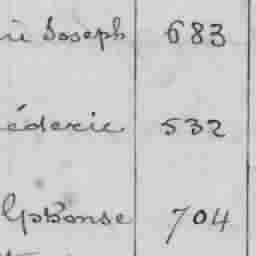 ie Joseph 683
éderic 532
lphonse 704